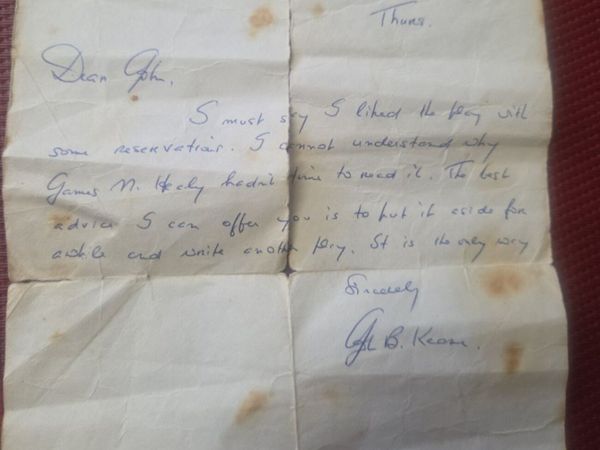 Thurs.
Dear John.
I must say I liked the play with
some reservations. I cannot understand why
James N. Healy hadn't time to read it. The best
advice I can offer you is to put it aside for
awhile and write another play. It is the only way
Sincerely
John B. Keane.